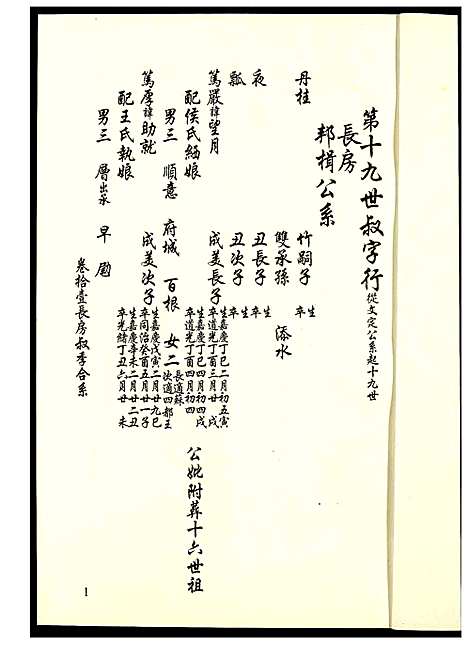 第十九世叔字行 從文定公系起十九世
長房
邦楫公系
丹桂 竹嗣子 生 卒
雙承孫 添水
夜 丑長子 生 卒
瓢 丑次子 生 卒
篤嚴諱望月 成美長子 生嘉慶丁巳二月初五寅 卒道光丁酉三月廿戌
配侯氏緬娘 生嘉慶丁巳四月初四戌 卒道光丁酉四月初四戌
男三 順意 府城 百根 女二 長適蘇 次適四都王 公妣附葬十六世祖
篤厚諱助就 成美次子 生嘉慶戊寅二月廿九巳 卒同治癸酉五月廿一子
配王氏執娘 生嘉慶辛未二月廿二丑 卒光緒丁丑六月廿未
男三 層出承 早
卷拾壹長房叔季合系
1